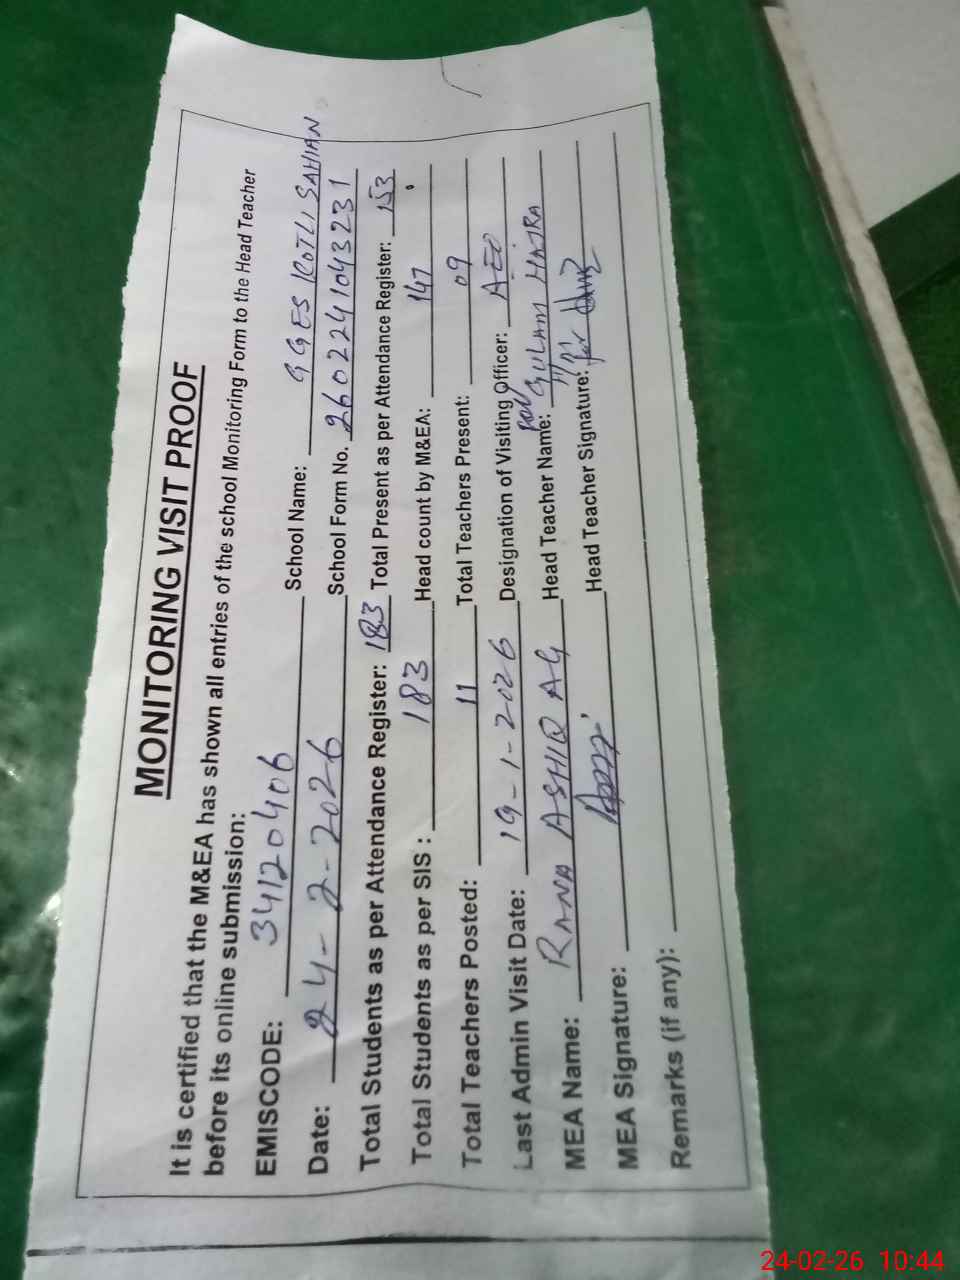 MONITORING VISIT PROOF
It is certified that the M&EA has shown all entries of the school Monitoring Form to the Head Teacher
before its online submission:
EMISCODE: 34120406 School Name: GGES KOTLI SAHIAN
Date: 24-2-2026 School Form No. 260224104323 1
Total Students as per Attendance Register: 183 Total Present as per Attendance Register: 153
Total Students as per SIS : 183 Head count by M&EA: 147
Total Teachers Posted: 11 Total Teachers Present: 09
Last Admin Visit Date: 19-1-2026 Designation of Visiting Officer: AEO
MEA Name: RANA ASHIQ Head Teacher Name: GULAM HAJRA
MEA Signature: Head Teacher Signature: for
Remarks (if any):
24-02-26 10:44